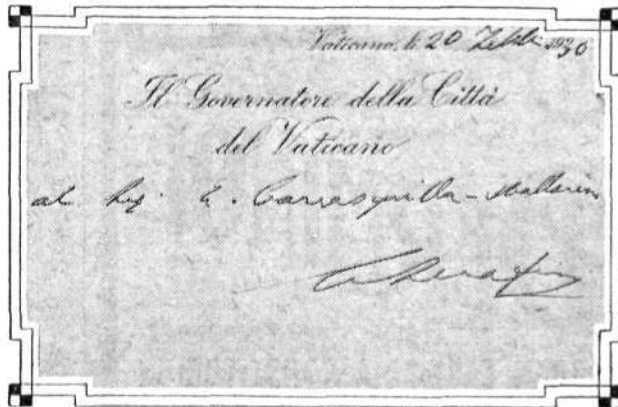 Vaticano, li 20 Febb 1930
Il Governatore della Città
del Vaticano
al Sig. E. Carrasquilla-Mallarino